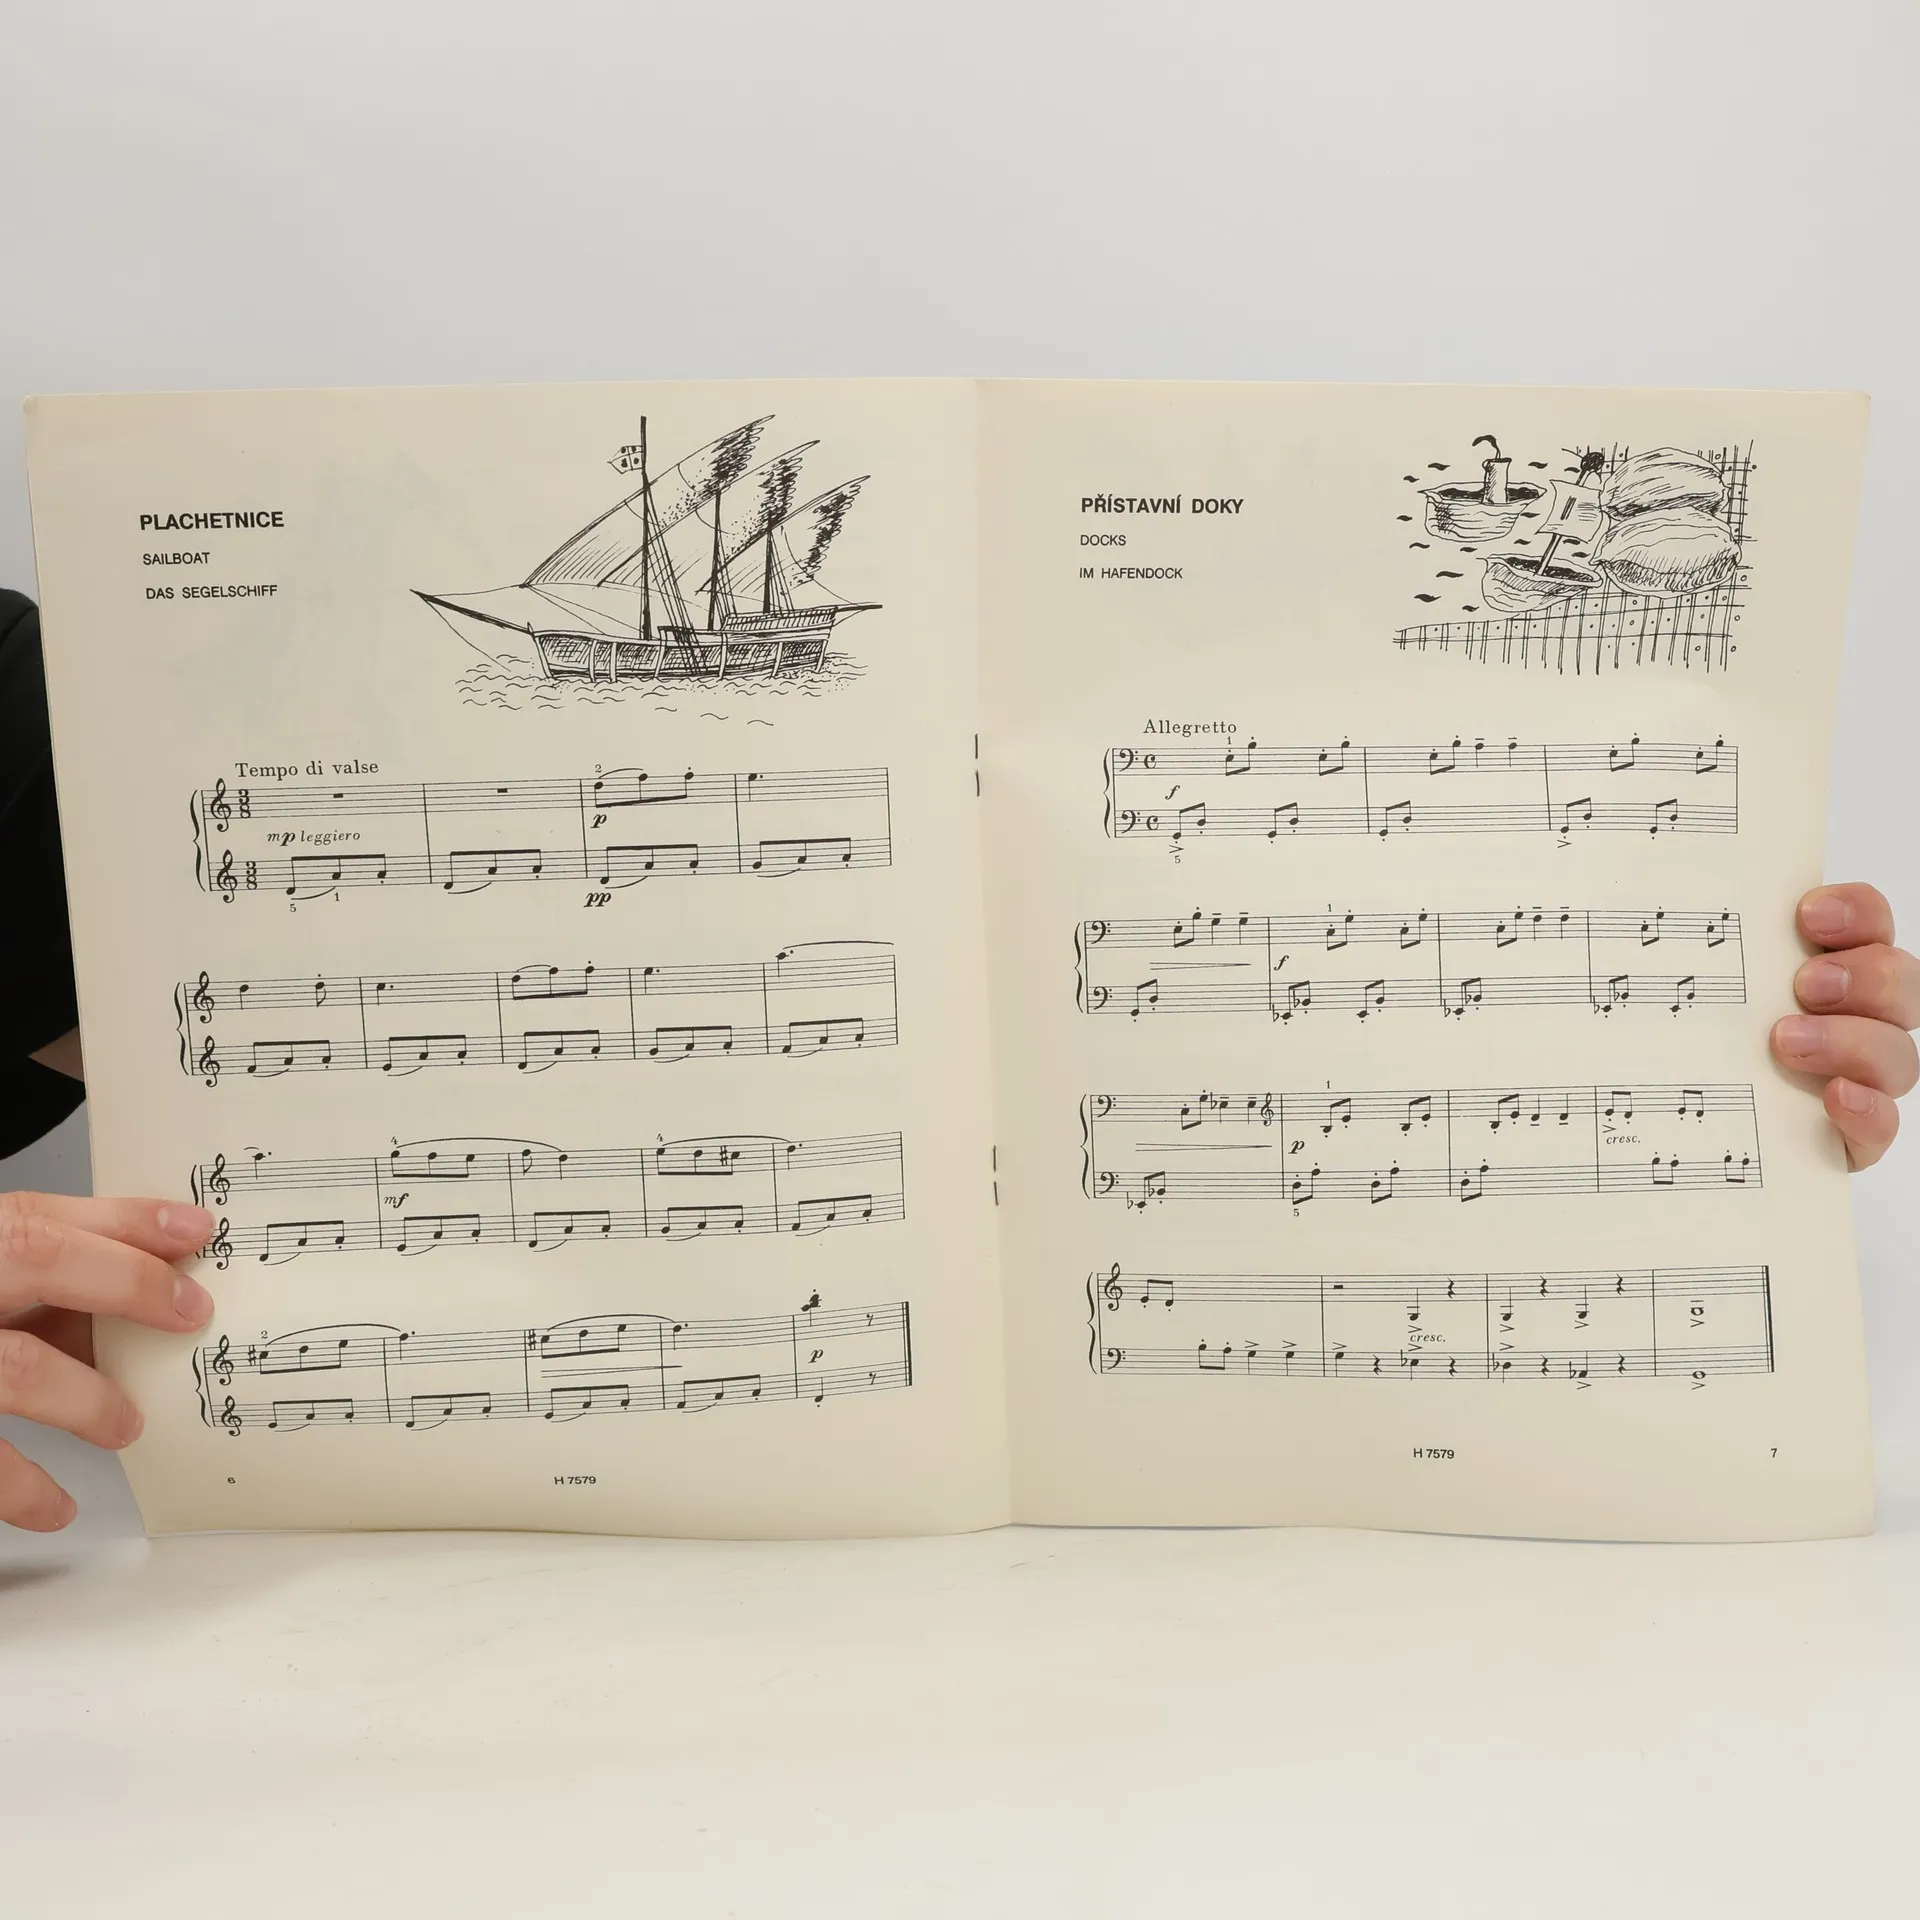 PLACHETNICE
SAILBOAT
DAS SEGELSCHIFF
Tempo di valse
2
3
8
mp leggiero
p
3
8
5 1
pp
4 4
mf
2
p
6
H 7579
PŘÍSTAVNÍ DOKY
DOCKS
IM HAFENDOCK
Allegretto
1
f
5
1
f
1
p
cresc.
5
cresc.
H 7579
7